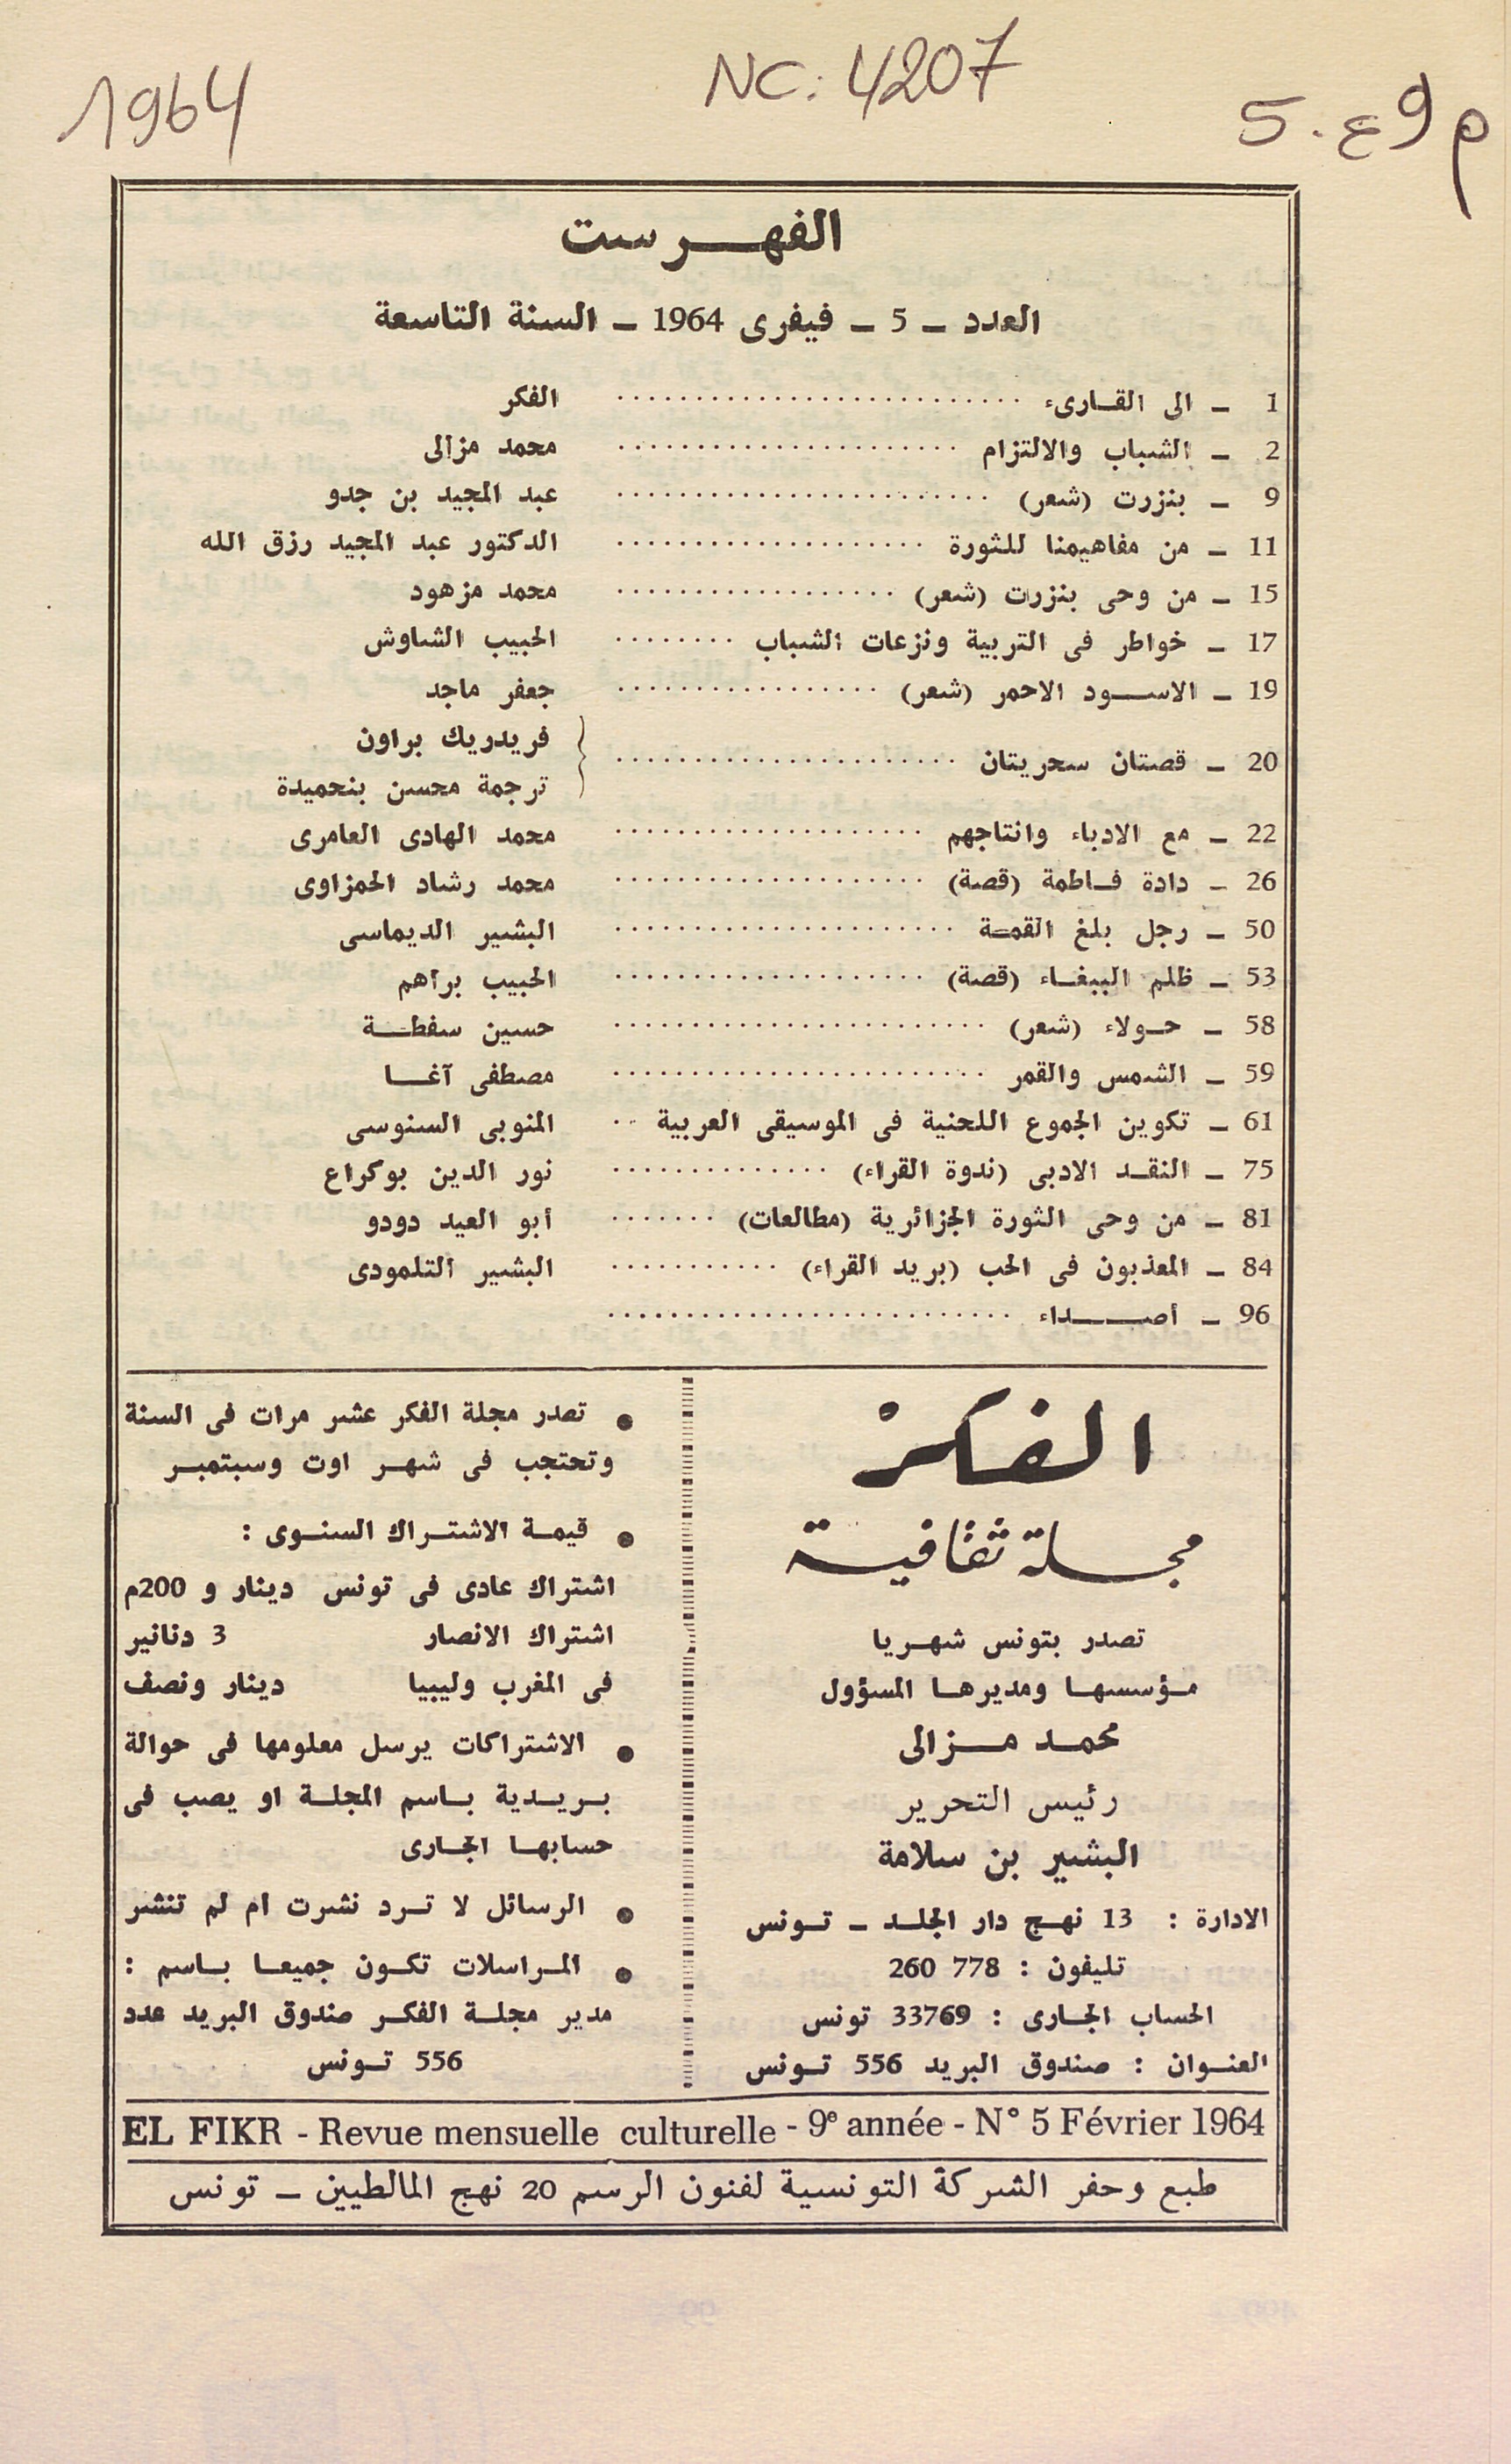 1964
NC: 4207
م 9 ع. 5
الفهرست
العدد ـ 5 ـ فيفرى 1964 ـ السنة التاسعة
1 ـ الى القارىء .......................... الفكر
2 ـ الشباب والالتزام ...................... محمد مزالى
9 ـ بنزرت (شعر) ........................ عبد المجيد بن جدو
11 ـ من مفاهيمنا للثورة .................... الدكتور عبد المجيد رزق الله
15 ـ من وحى بنزرت (شعر) .................. محمد مزهود
17 ـ خواطر فى التربية ونزعات الشباب ........ الحبيب الشاوش
19 ـ الاسود الاحمر (شعر) ................. جعفر ماجد
20 ـ قصتان سحريتان ...................... { فريدريك براون
ترجمة محسن بنحميدة
22 ـ مع الادباء وانتاجهم .................... محمد الهادى العامرى
26 ـ دادة فاطمة (قصة) .................... محمد رشاد الحمزاوى
50 ـ رجل بلغ القمة ...................... البشير الديماسى
53 ـ ظلم الببغاء (قصة) .................... الحبيب براهم
58 ـ حولاء (شعر) ........................ حسين سفطة
59 ـ الشمس والقمر ........................ مصطفى آغا
61 ـ تكوين الجموع اللحنية فى الموسيقى العربية .. المنوبى السنوسى
75 ـ النقد الادبى (ندوة القراء) .............. نور الدين بوكراع
81 ـ من وحى الثورة الجزائرية (مطالعات) ....... أبو العيد دودو
84 ـ المعذبون فى الحب (بريد القراء) ........... البشير التلمودى
96 ـ أصداء ..........................
الفكر
مجلة ثقافية
تصدر بتونس شهريا
مؤسسها ومديرها المسؤول
محمد مزالى
رئيس التحرير
البشير بن سلامة
الادارة : 13 نهج دار الجلد ـ تونس
تليفون : 778 260
الحساب الجارى : 33769 تونس
العنوان : صندوق البريد 556 تونس
● تصدر مجلة الفكر عشر مرات فى السنة
وتحتجب فى شهر اوت وسبتمبر
● قيمة الاشتراك السنوى :
اشتراك عادى فى تونس دينار و 200م
اشتراك الانصار 3 دنانير
فى المغرب وليبيا دينار ونصف
● الاشتراكات يرسل معلومها فى حوالة
بريدية باسم المجلة او يصب فى
حسابها الجارى
● الرسائل لا ترد نشرت ام لم تنشر
● المراسلات تكون جميعا باسم :
مدير مجلة الفكر صندوق البريد عدد
556 تونس
EL FIKR - Revue mensuelle culturelle - 9e année - N° 5 Février 1964
طبع وحفر الشركة التونسية لفنون الرسم 20 نهج المالطيين ـ تونس